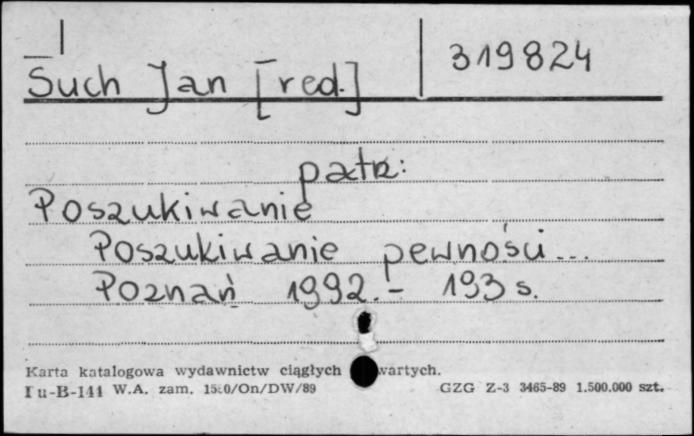 319824
Such Jan [red.]
patrz:
Poszukiwanie
Poszukiwanie pewności...
Poznań 1992.- 193 s.
Karta katalogowa wydawnictw ciągłych wartych.
u-B-141 W.A. zam. /On/DW/89 GZG Z-3 3465-89 1.500.000 szt.